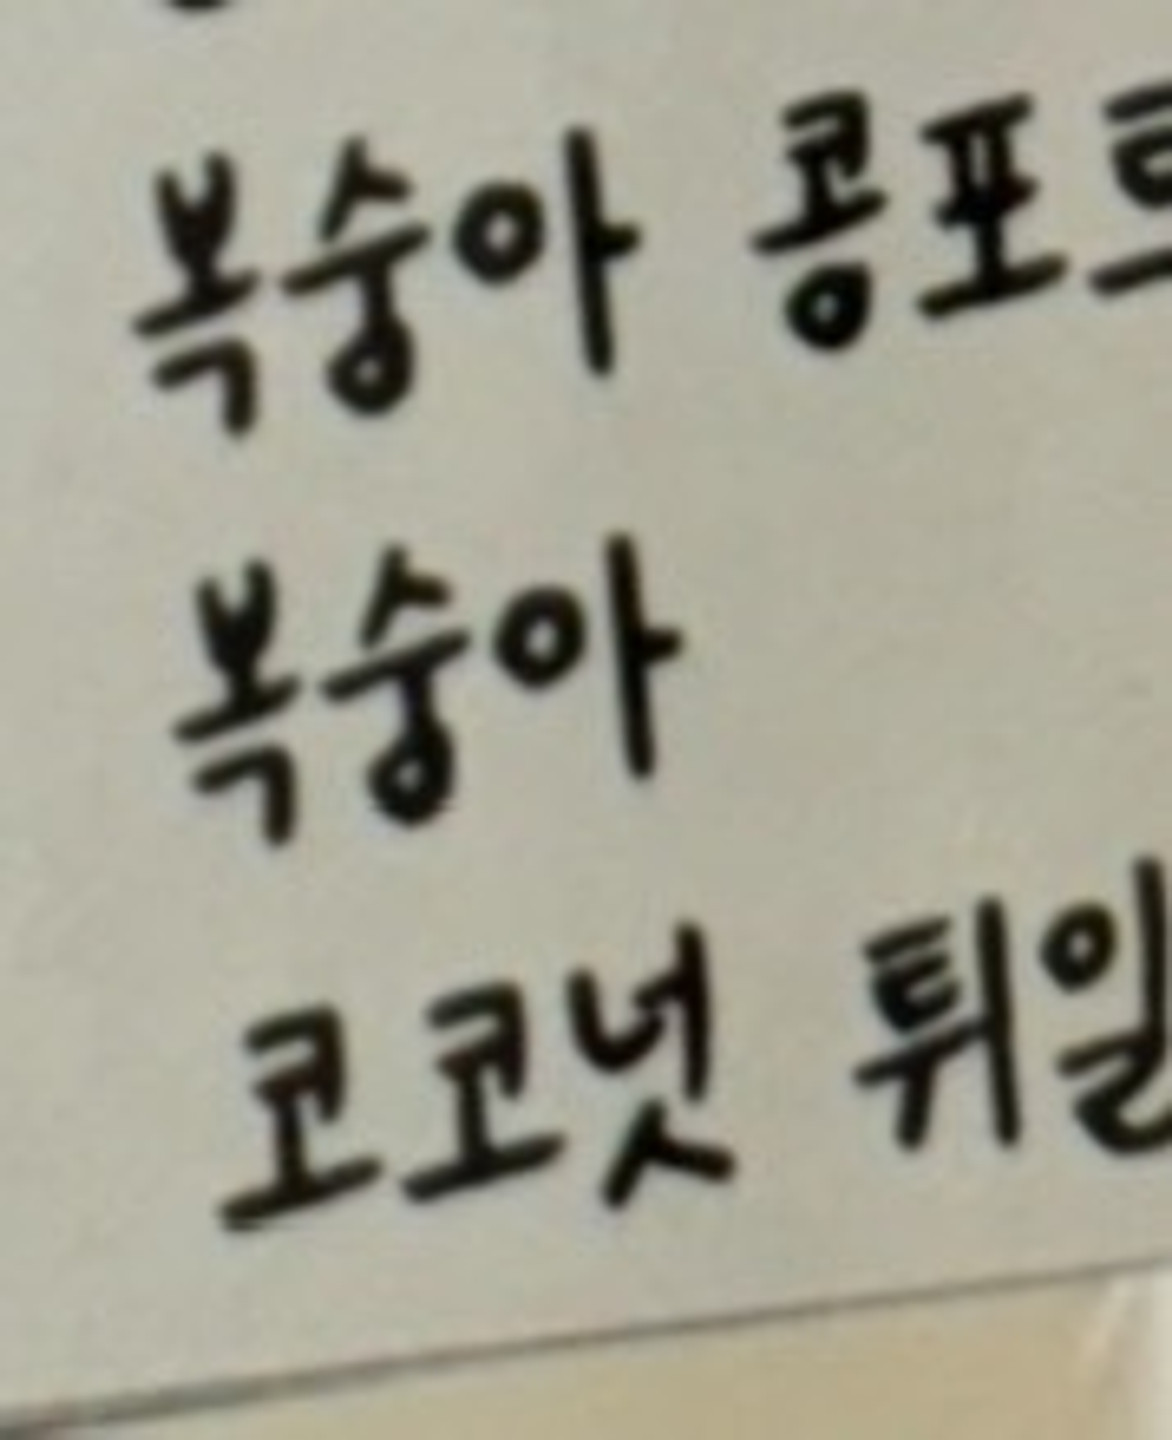 복숭아 콩포트
복숭아
코코넛 튀일